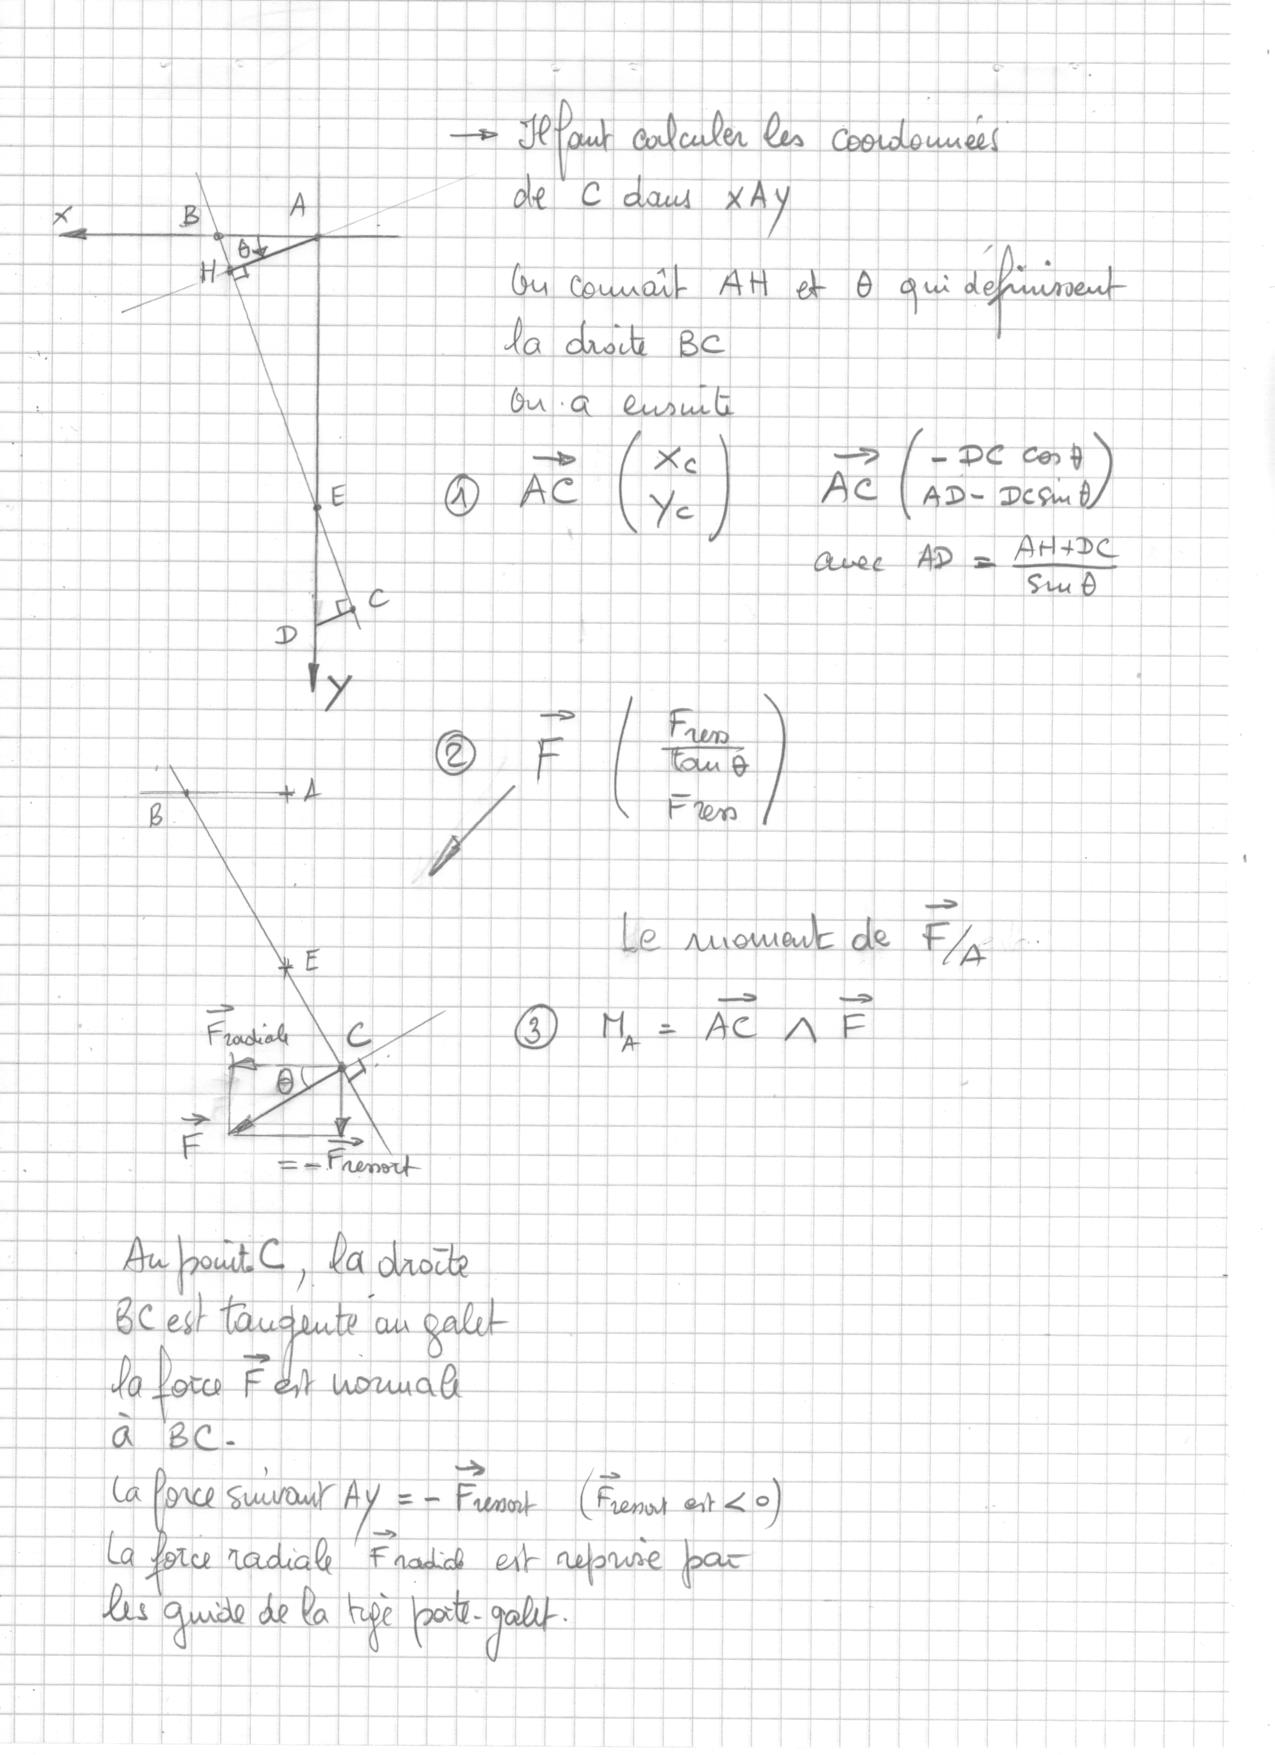 → Il faut calculer les coordonnées
de C dans xAy
X
B
A
θ
H
On connaît AH et θ qui définissent
la droite BC
On a ensuite
① AC→ (Xc Yc) AC→ (- DC cos θ AD - DC sin θ)
avec AD = AH+DC / sin θ
E
C
D
y
② F→ (Fress / tan θ Fress)
B
A
E
Le moment de F→/A
③ M_A = AC→ ∧ F→
F→radiale
C
θ
F→
= - F→ressort
Au point C, la droite
BC est tangente au galet
la force F→ est normale
à BC.
La force suivant Ay = - F→ressort (F→ressort est < 0)
La force radiale F→radiale est reprise par
les guide de la tige porte-galet.